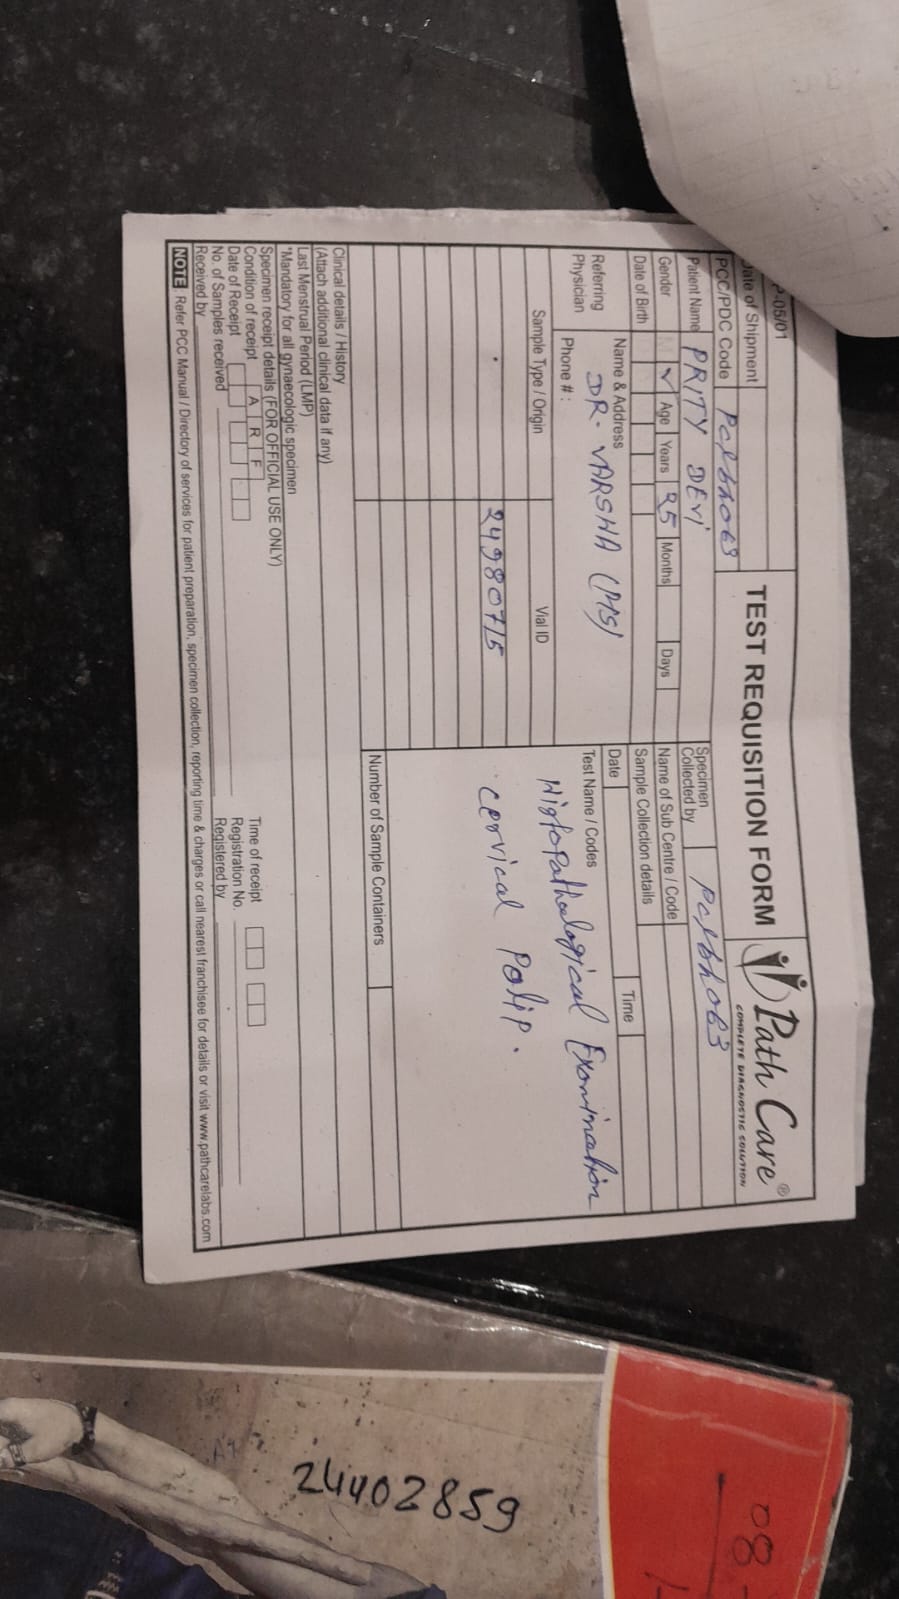 P-05/01
Date of Shipment
TEST REQUISITION FORM
Path Care®
COMPLETE DIAGNOSTIC SOLUTION
PCC/PDC Code Pclbh063
Specimen Collected by Pclbh063
Patient Name PRITY DEVI
Name of Sub Centre / Code
Gender M ✓ Age Years 25 Months Days
Sample Collection details
Date of Birth
Date Time
Referring Physician
Name & Address
DR. VARSHA (MS)
Phone # :
Test Name / Codes
Histopathological Examination
cervical Polip.
Sample Type / Origin Vial ID
24980715
Number of Sample Containers
Clinical details / History
(Attach additional clinical data if any)
Last Menstrual Period (LMP)
*Mandatory for all gynaecologic specimen
Specimen receipt details (FOR OFFICIAL USE ONLY)
Condition of receipt A R F
Time of receipt
Date of Receipt
Registration No.
No. of Samples received
Registered by
Received by
NOTE Refer PCC Manual / Directory of services for patient preparation, specimen collection, reporting time & charges or call nearest franchisee for details or visit www.pathcarelabs.com
24402859
08